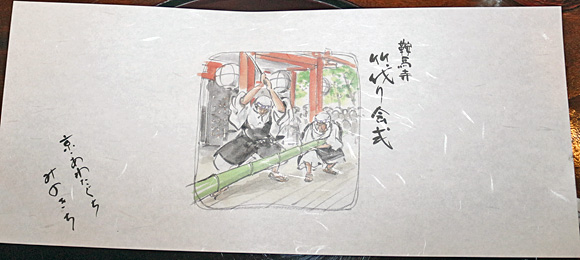 鞍馬寺
竹伐り会式
京・あわたぐち
みのきち